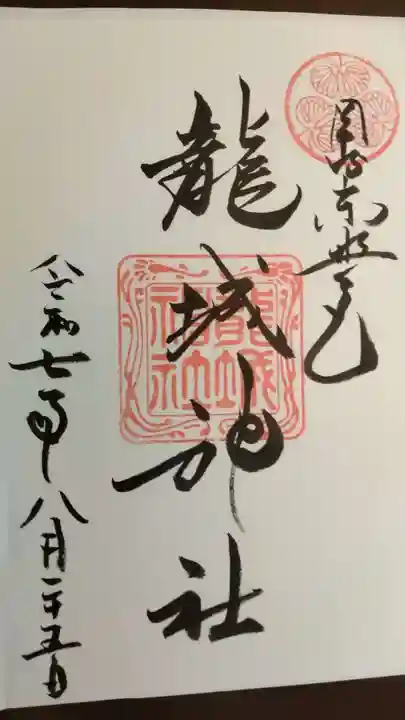 岡崎東照宮
龍城神社
龍城
神社
令和七年八月二十五日